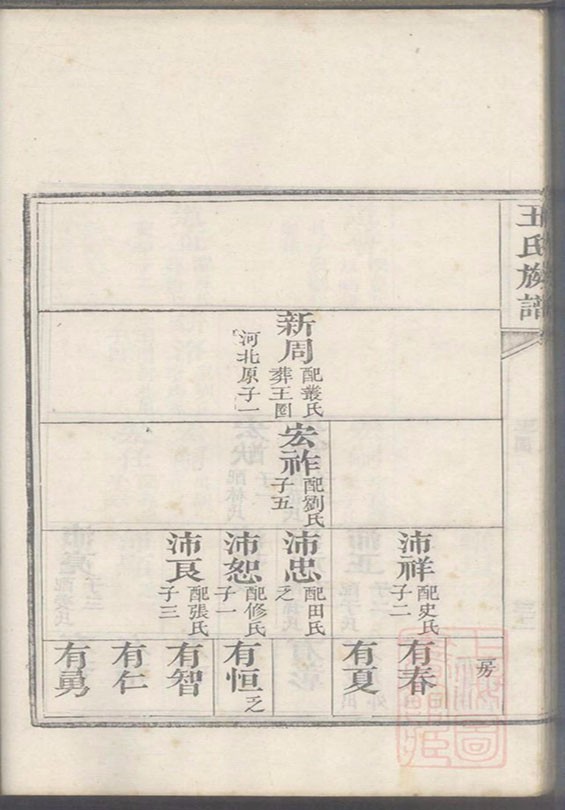 王氏族譜
新周
配叢氏
葬王圈
河北原子一
宏祚
配劉氏
子五
沛祥
配史氏
子二
沛忠
配田氏
乏
沛恕
配修氏
子一
沛良
配張氏
子三
房
有春
有夏
有恒
乏
有智
有仁
有勇